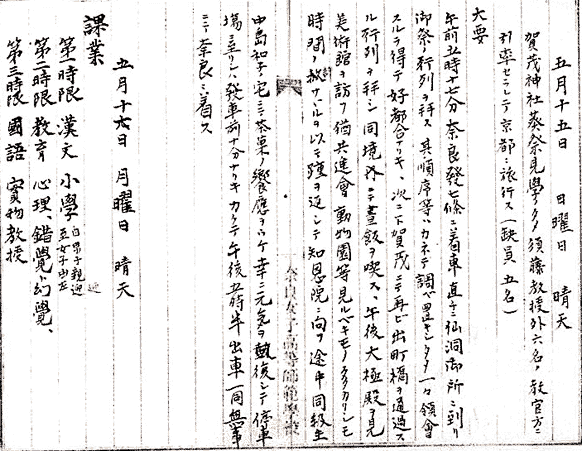 五月十五日 日曜日 晴天
賀茂神社葵祭見學ノタメ須藤教授外六名ノ教官方ニ
引率セラレテ京都ニ旅行ス(缺員 五名)
大要
午前五時十七分奈良發七條ニ着車直ニ仙洞御所ニ到リ
御祭ノ行列ヲ拜ス 其順序等ハカネテ調ベ置キタレバ一々領會
スルヲ得テ好都合ナリキ、次ニ下賀茂ニテ再ビ出町橋ヲ通過ス
ル行列ヲ拜シ同境内ニテ晝飯ヲ喫ス、午後大極殿ヲ見
美術館ヲ訪フ猶共進會動物園等見ルベキモノ多カリシモ
時間ノ許サヾルヲ以テ踵ヲ返シテ知恩院ニ向フ途中同級生
中島和子ノ宅ニテ茶菓ノ饗應ヲウケ幸ニ元気ヲ恢復シテ停車
場ニ至リシハ發車前十分ナリキカクテ午後五時半出車一同無事
ニテ奈良ニ着ス
奈良女子高等師範學校
五月十六日 月曜日 晴天
課業
第一時限 漢文 小學 自男子親迎 至女子出左
第二時限 教育 心理、錯覺ト幻覺、
第三時限 國語 實物教授